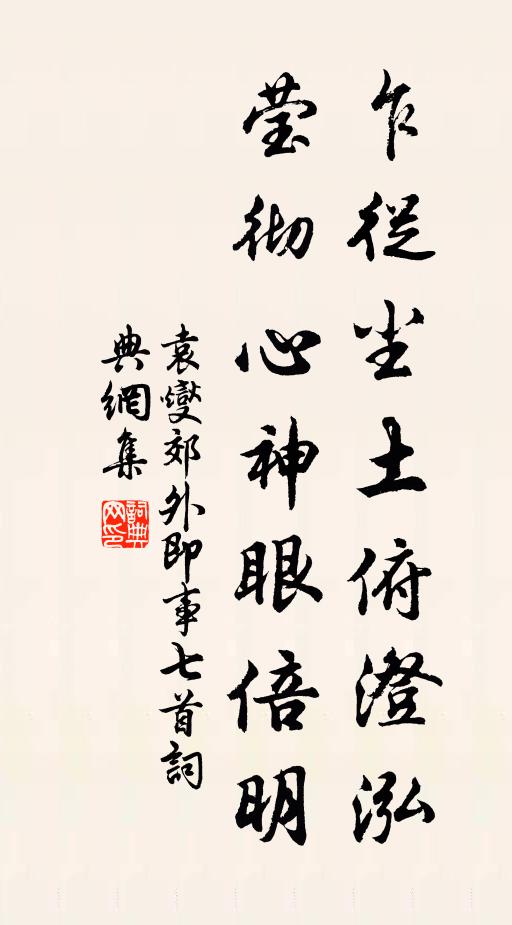 乍從尘土俯澄泓
莹彻心神眼倍明
袁燮郊外即事七首詞
典網集
詞典网印